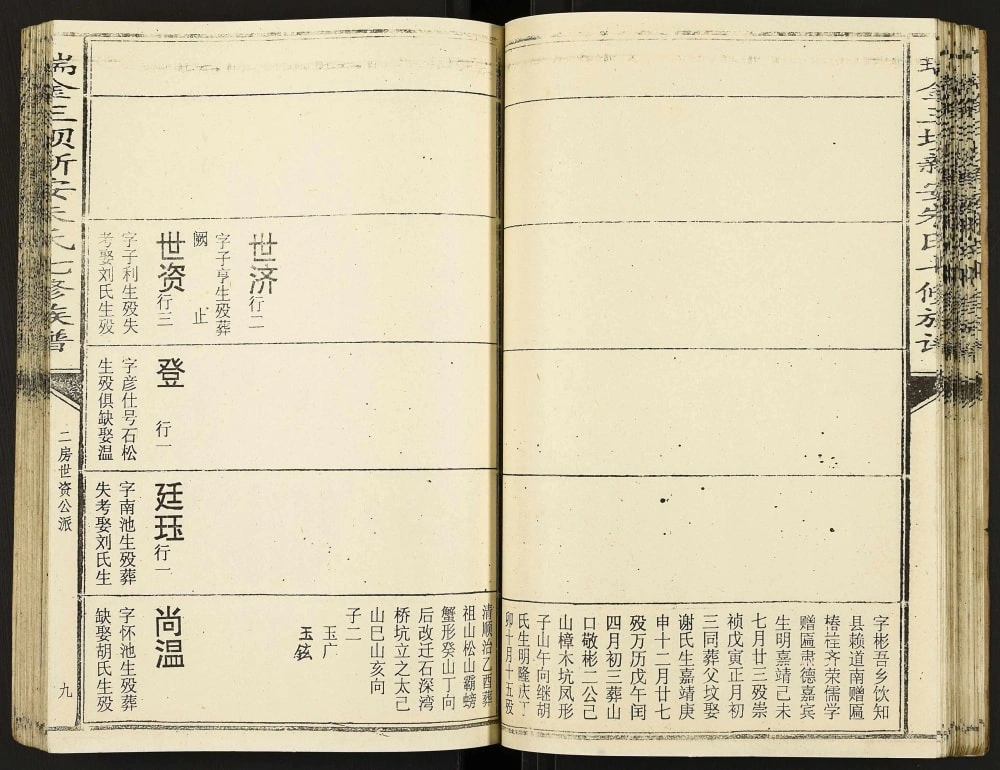 瑞金三坝新安朱氏七修族谱
字彬吾乡饮知
县赖道南赠匾
椿荘齐荣儒学
赠匾肃德嘉宾
生明嘉靖己未
七月廿三殁崇
祯戊寅正月初
三同葬父坟娶
谢氏生嘉靖庚
申十二月廿七
殁万历戊午闰
四月初三葬山
口敬彬二公己
山樟木坑凤形
子山午向继胡
氏生明隆庆丁
卯十月十五殁
清顺治乙酉葬
祖山松山霸螃
蟹形癸山丁向
后改迁石深湾
桥坑立之太己
山巳山亥向
子二
玉广
玉铉
世济行二
字子亨生殁葬
阙 止
世资行三
字子利生殁失
考娶刘氏生殁
登 行一
字彦仕号石松
生殁俱缺娶温
廷珏行一
字南池生殁葬
失考娶刘氏生
尚温
字怀池生殁葬
缺娶胡氏生殁
瑞金三坝新安朱氏七修族谱
二房世资公派
九